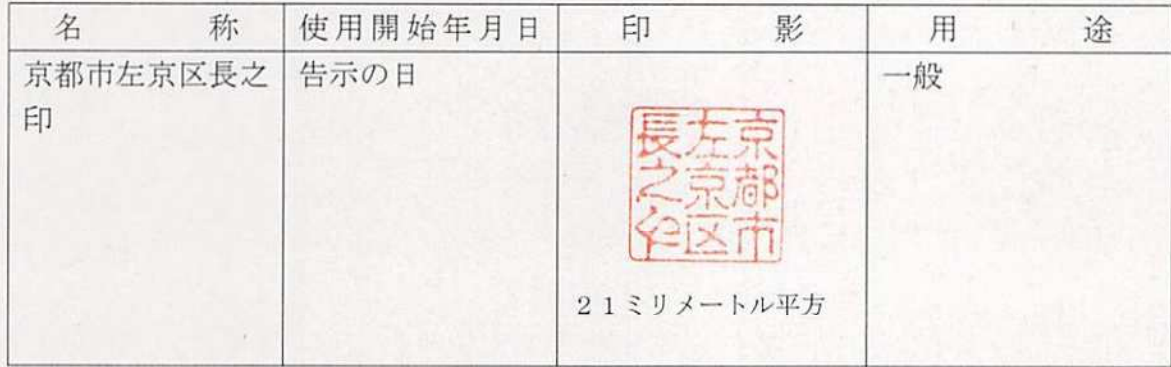 名称 使用開始年月日 印影 用途
京都市左京区長之印 告示の日 一般
京都市
左京区
長之印
21ミリメートル平方